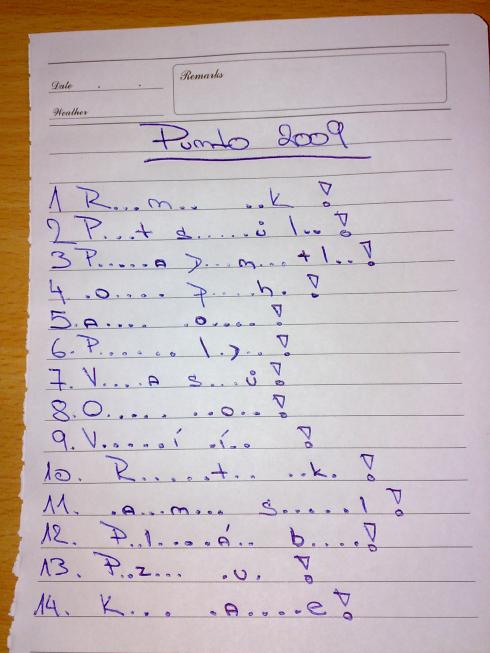 Date . .
Remarks
Weather
Pumlo 2009
1 R...m.. ..k !
2 P...t s......ů l..!
3 P.....a p....m...+l..!
4. .o.... p....h. !
5. a.... .o....!
6. P...... l.p..!
7. V....a s...ů!
8. O..... ..o..!
9. V.....í .í.. !
10. R......t.. ..k. !
11. .a.m... s......l !
12. P.l....á.. b....!
13. P.z... .u. !
14. K... .a.....e!